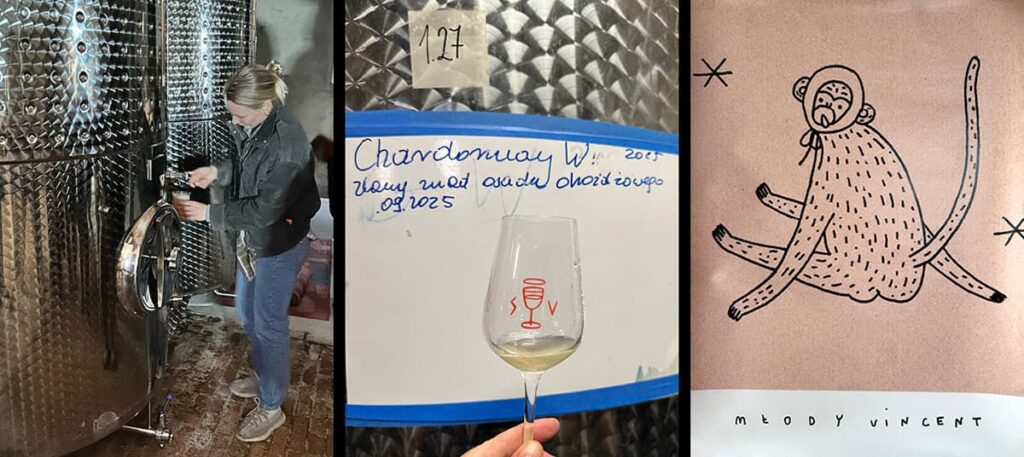 1.27
Chardonnay W. 2025
zlany znad osadu drożdżowego
.09.2025
S V
MŁODY VINCENT